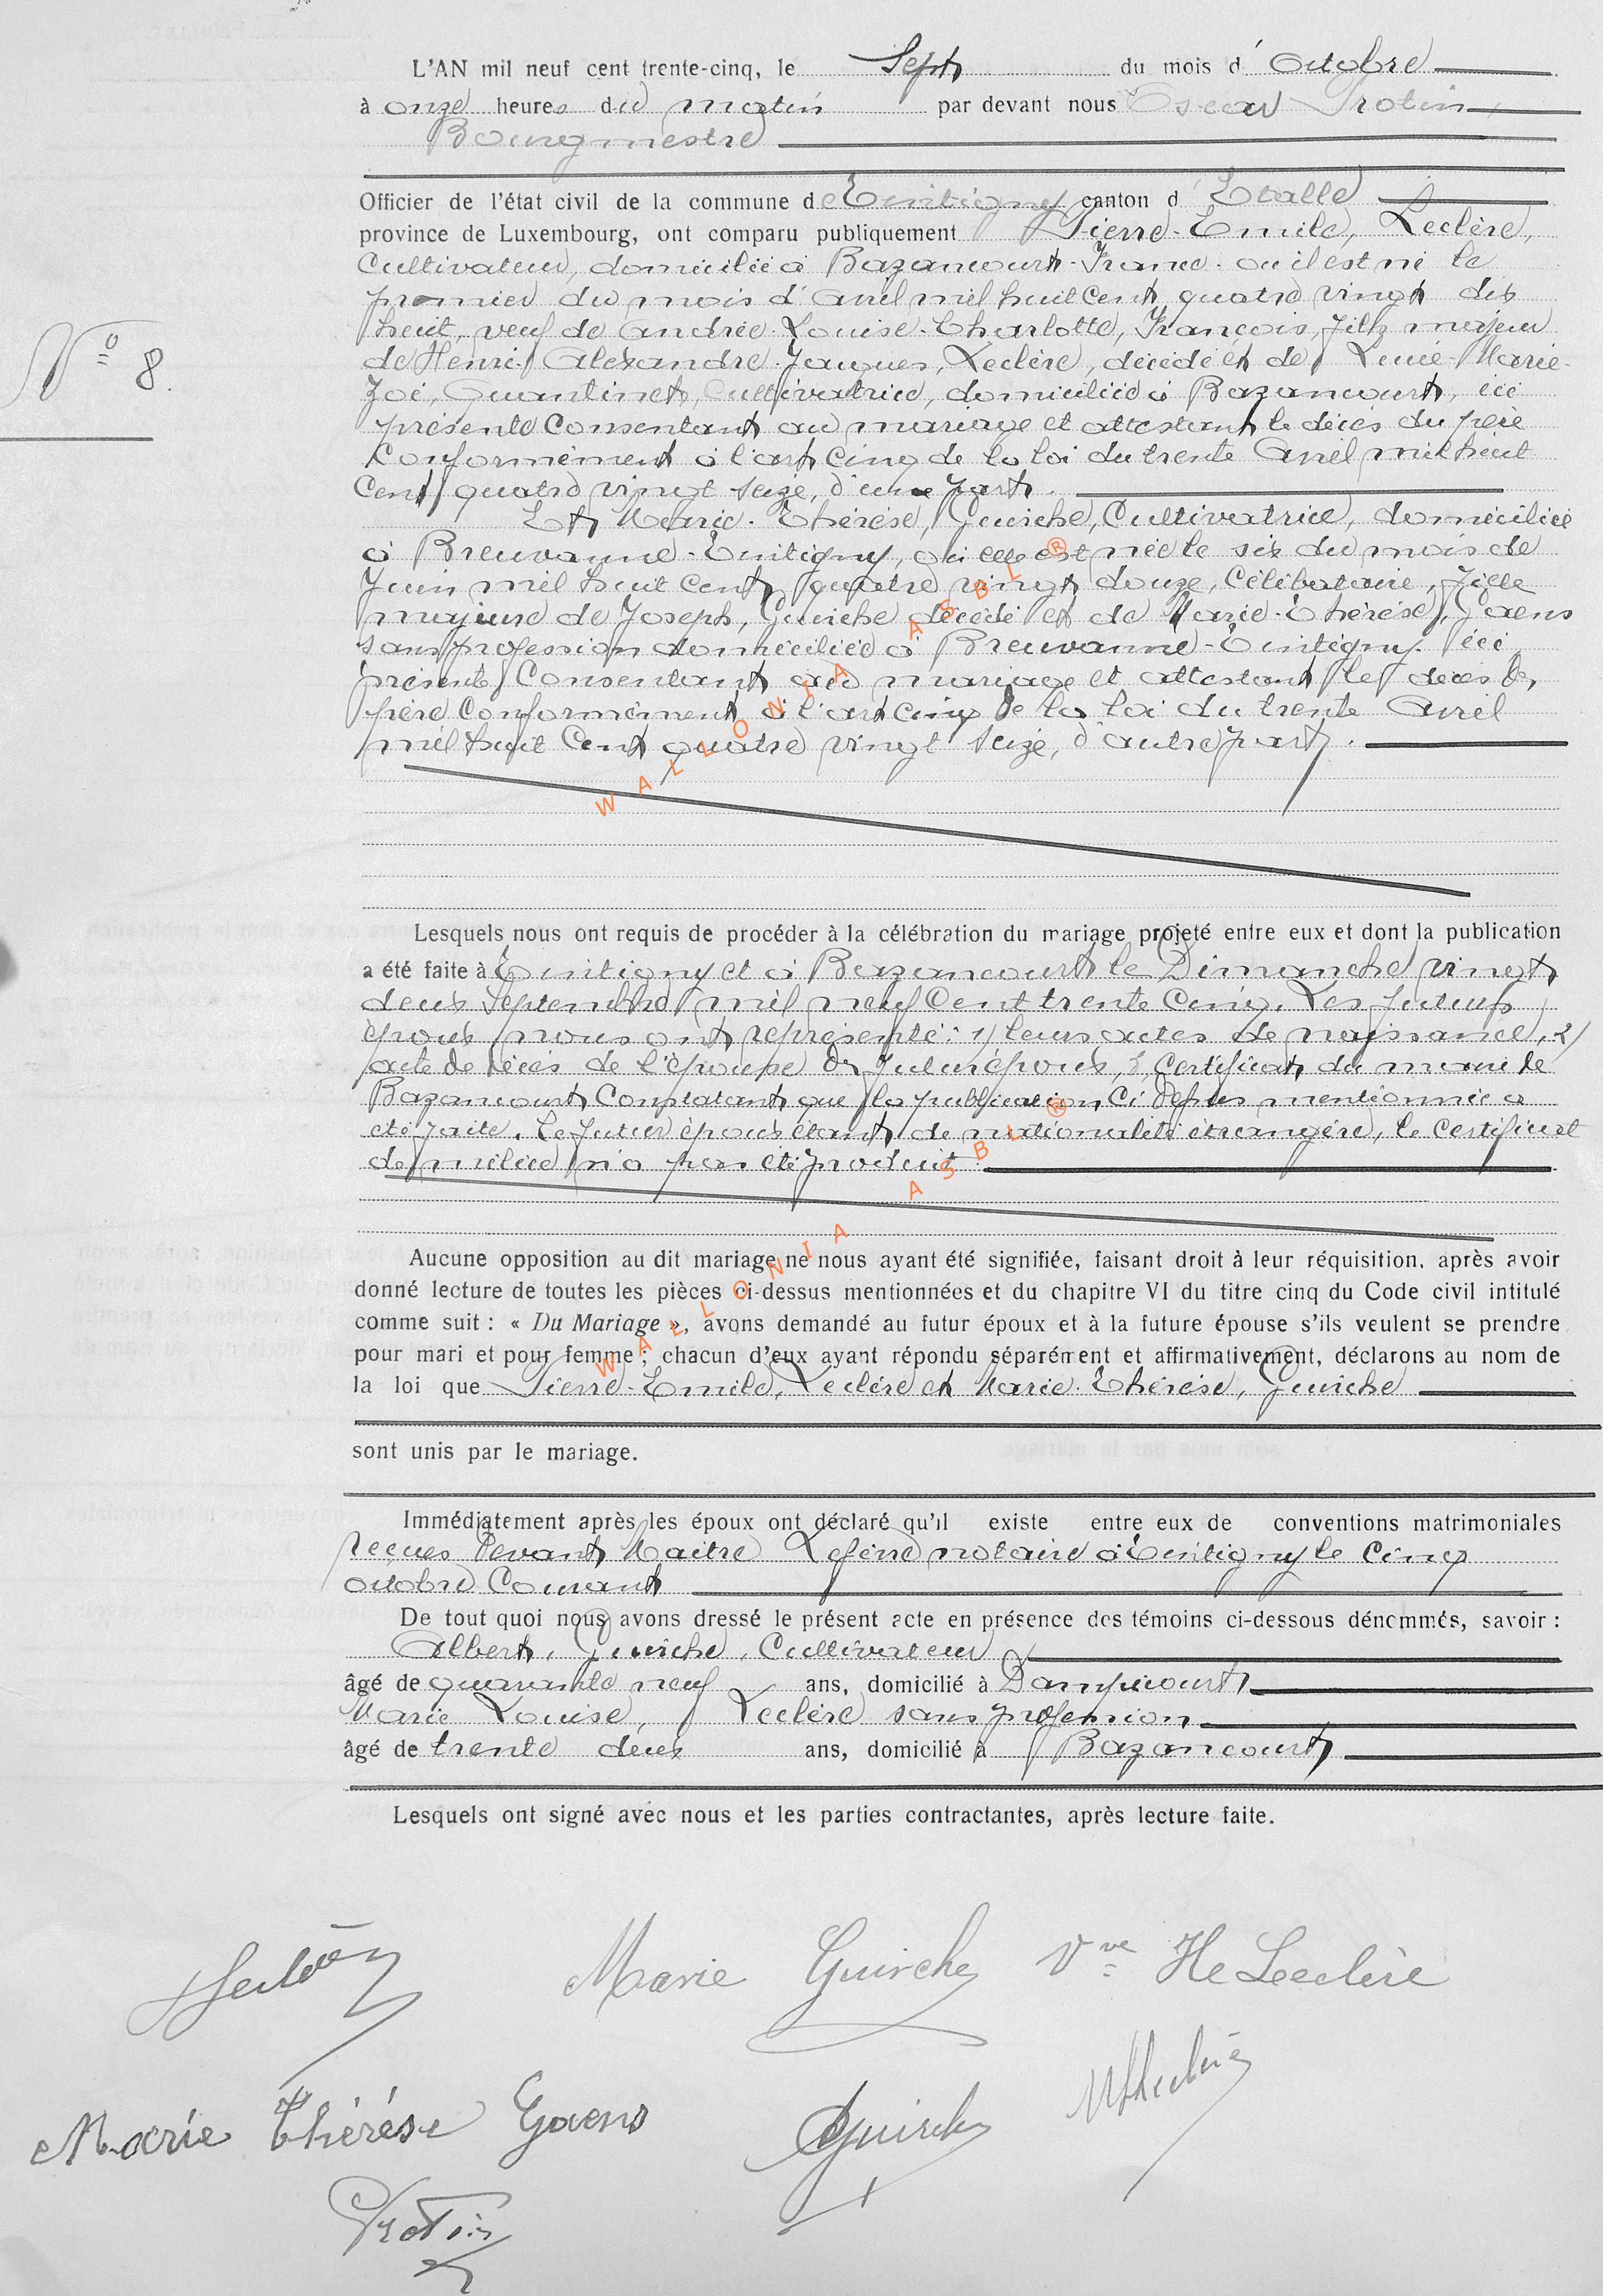 L'AN mil neuf cent trente-cinq, le Sept du mois d' Octobre
à onze heures du matin par devant nous Oscar Protin,
Bourgmestre
Officier de l'état civil de la commune de Tintigny canton d' Etalle
province de Luxembourg, ont comparu publiquement Pierre-Emile, Leclère,
Cultivateur, domicilié à Bazancourt-France-où il est né le
premier du mois d'avril mil huit cent quatre vingt dix
huit, veuf de Andrée-Louise-Charlotte, François, fils majeur
N° 8.
de Henri-Alexandre-Jacques, Leclère, décédé et de Lucie-Marie-
Zoé, Quantinet, Cultivatrice, domiciliée à Bazancourt, ici
présente Consentant au mariage et attestant le décès du père
Conformément à l'art cinq de la loi du trente Avril mil huit
Cent quatre vingt seize, d'une part.
Et Marie-Thérèse, Guirche, Cultivatrice, domiciliée
à Breuvanne-Tintigny, où elle est née le six du mois de
Juin mil huit cent quatre vingt douze, Célibataire, fille
majeure de Joseph, Guirche décédé et de Marie-Thérèse, Goens
sans profession domiciliée à Breuvanne-Tintigny. ici
présente Consentant au mariage et attestant le décès du
père Conformément à l'art cinq de la loi du trente Avril
mil huit Cent quatre vingt seize, d'autre part.
Lesquels nous ont requis de procéder à la célébration du mariage projeté entre eux et dont la publication
a été faite à Tintigny et à Bazancourt le Dimanche vingt
deux Septembre mil neuf Cent trente cinq. Les futurs
époux nous ont représenté: 1) leurs actes de naissance, 2)
acte de décès de l'épouse du futur époux, 3, Certificat du maire de
Bazancourt Constatant que la publication Ci dessus mentionnée a
été faite. Le futur époux étant de nationalité étrangère, le Certificat
de milice n'a pas été produit.
Aucune opposition au dit mariage ne nous ayant été signifiée, faisant droit à leur réquisition, après avoir
donné lecture de toutes les pièces ci-dessus mentionnées et du chapitre VI du titre cinq du Code civil intitulé
comme suit : « Du Mariage », avons demandé au futur époux et à la future épouse s'ils veulent se prendre
pour mari et pour femme ; chacun d'eux ayant répondu séparément et affirmativement, déclarons au nom de
la loi que Pierre-Emile, Leclère et Marie-Thérèse, Guirche
sont unis par le mariage.
Immédiatement après les époux ont déclaré qu'il existe entre eux de conventions matrimoniales
reçues devant Maître Lefèvre notaire à Tintigny le Cinq
octobre Courant
De tout quoi nous avons dressé le présent acte en présence des témoins ci-dessous dénommés, savoir :
Albert, Guirche, Cultivateur
âgé de quarante neuf ans, domicilié à Dampicourt
Marie Louise, Leclère sans profession
âgé de trente deux ans, domicilié à Bazancourt
Lesquels ont signé avec nous et les parties contractantes, après lecture faite.
Marie Guirche Vve He Leclère
Marie Thérèse Goens Guirche
Protin
WALLONIA ASBL ®
WALLONIA ASBL ®